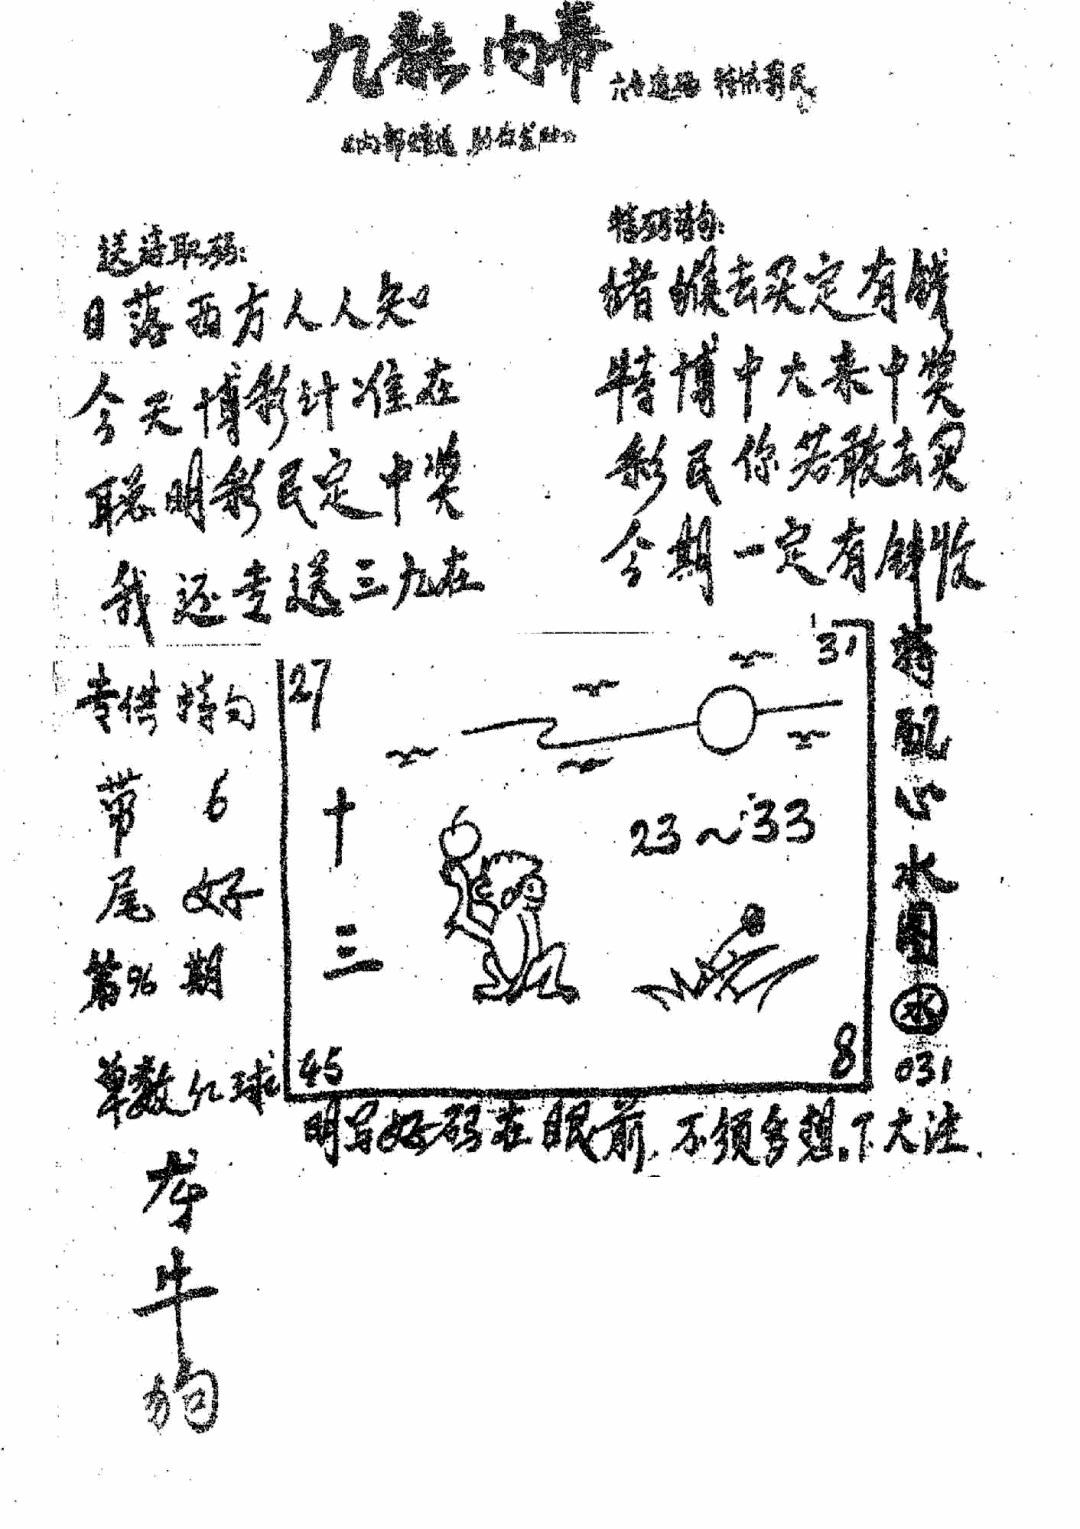 九龙内幕
送诗取码:
日落西方人人知
今天博彩计准在
聪明彩民定中奖
我还专送三九在
特码诗句:
猪猴去买定有钱
特博中大来中奖
彩民你若敢去买
今期一定有钱收
专供特句
带 6
尾 好
期
单数红球
龙
牛
狗
27
31
十
三
23~33
45
8
特配心水图
水
031
明号好码在眼前.不须多想.下大注.